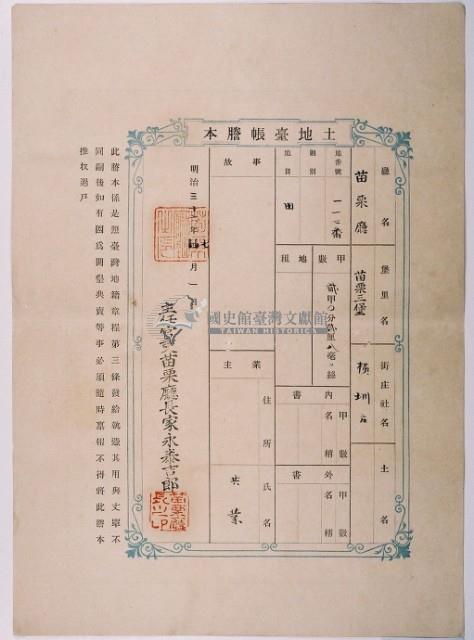 土地臺帳謄本
廳名
苗栗廳
堡里名
苗栗三堡
街庄社名
土名
地番號
一一七番
則別
地目
田
甲數
地租
內書
甲數
名稱
外書
甲數
名稱
事故
業主
住所
氏名
共業
明治三十
年
七月一
苗栗廳長家永泰吉郎
苗栗廳長之印
此謄本係是照臺灣地籍章程第三條發給就
其用與丈單不
同嗣後如有因為開墾典賣等事必須隨時稟報不得將此謄本
推收過戶
國史館臺灣文獻館
TAIWAN HISTORICA